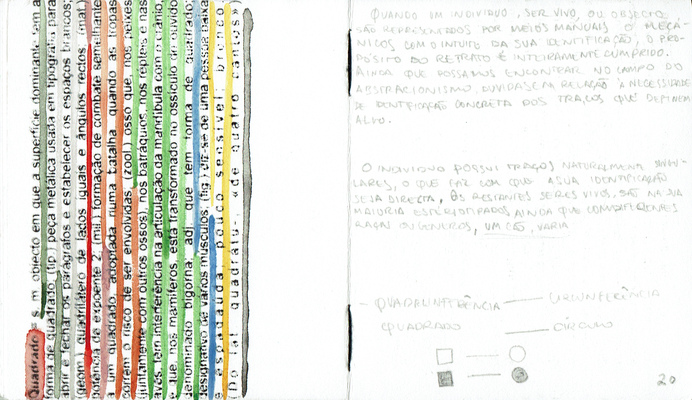 Quadrado = s. m. objecto em que a superfície dominante tem a
forma de quadrado; (tip.) peça metálica usada em tipografia, para
abrir e fechar os parágrafos e estabelecer os espaços brancos;
(geom.) quadrilátero de lados iguais e ângulos rectos; (mat.)
potência de expoente 2; (mil.) formação de combate semelhante
a um quadrado, adoptada numa batalha quando as tropas
correm o risco de ser envolvidas; (zool.) osso que, nos peixes
(juntamente com outros ossos), nos batráquios, nos répteis e nas
aves, tem interferência da articulação da mandíbula com o crânio,
e que, nos mamíferos, está transformado no ossículo do ouvido
denominado bigorna; adj. que tem forma de quadrado;
designativo de vários músculos; (fig.) diz-se de uma pessoa baixa
e espadaúda; pouco sensível; bronco
(Do lat. quadratu-, «de quatro cantos»)
QUANDO UM INDIVIDUO, SER VIVO, OU OBJECTO
SÃO REPRESENTADOS POR MEIOS MANUAIS OU MECÂ-
NICOS COM O INTUITO DA SUA IDENTIFICAÇÃO, O PRO-
PÓSITO DO RETRATO É INTEIRAMENTE CUMPRIDO.
AINDA QUE POSSAMOS ENCONTRAR NO CAMPO DO
ABSTRACIONISMO, DUVIDAS EM RELAÇÃO À NECESSIDADE
DE IDENTIFICAÇÃO CONCRETA DOS TRAÇOS QUE DEFINEM
ALGO.
O INDIVIDUO POSSUI TRAÇOS NATURALMENTE SINGU-
LARES, O QUE FAZ COM QUE A SUA IDENTIFICAÇÃO
SEJA DIRECTA, OS RESTANTES SERES VIVOS, SÃO NA SUA
MAIORIA ESTERIOTIPADOS AINDA QUE COM DIFERENTES
RAÇAS OU GENEROS, UM CÃO, VARIA
- QUADRUNFERÊNCIA — CIRCUNFERÊNCIA
QUADRADO — CÍRCULO
20